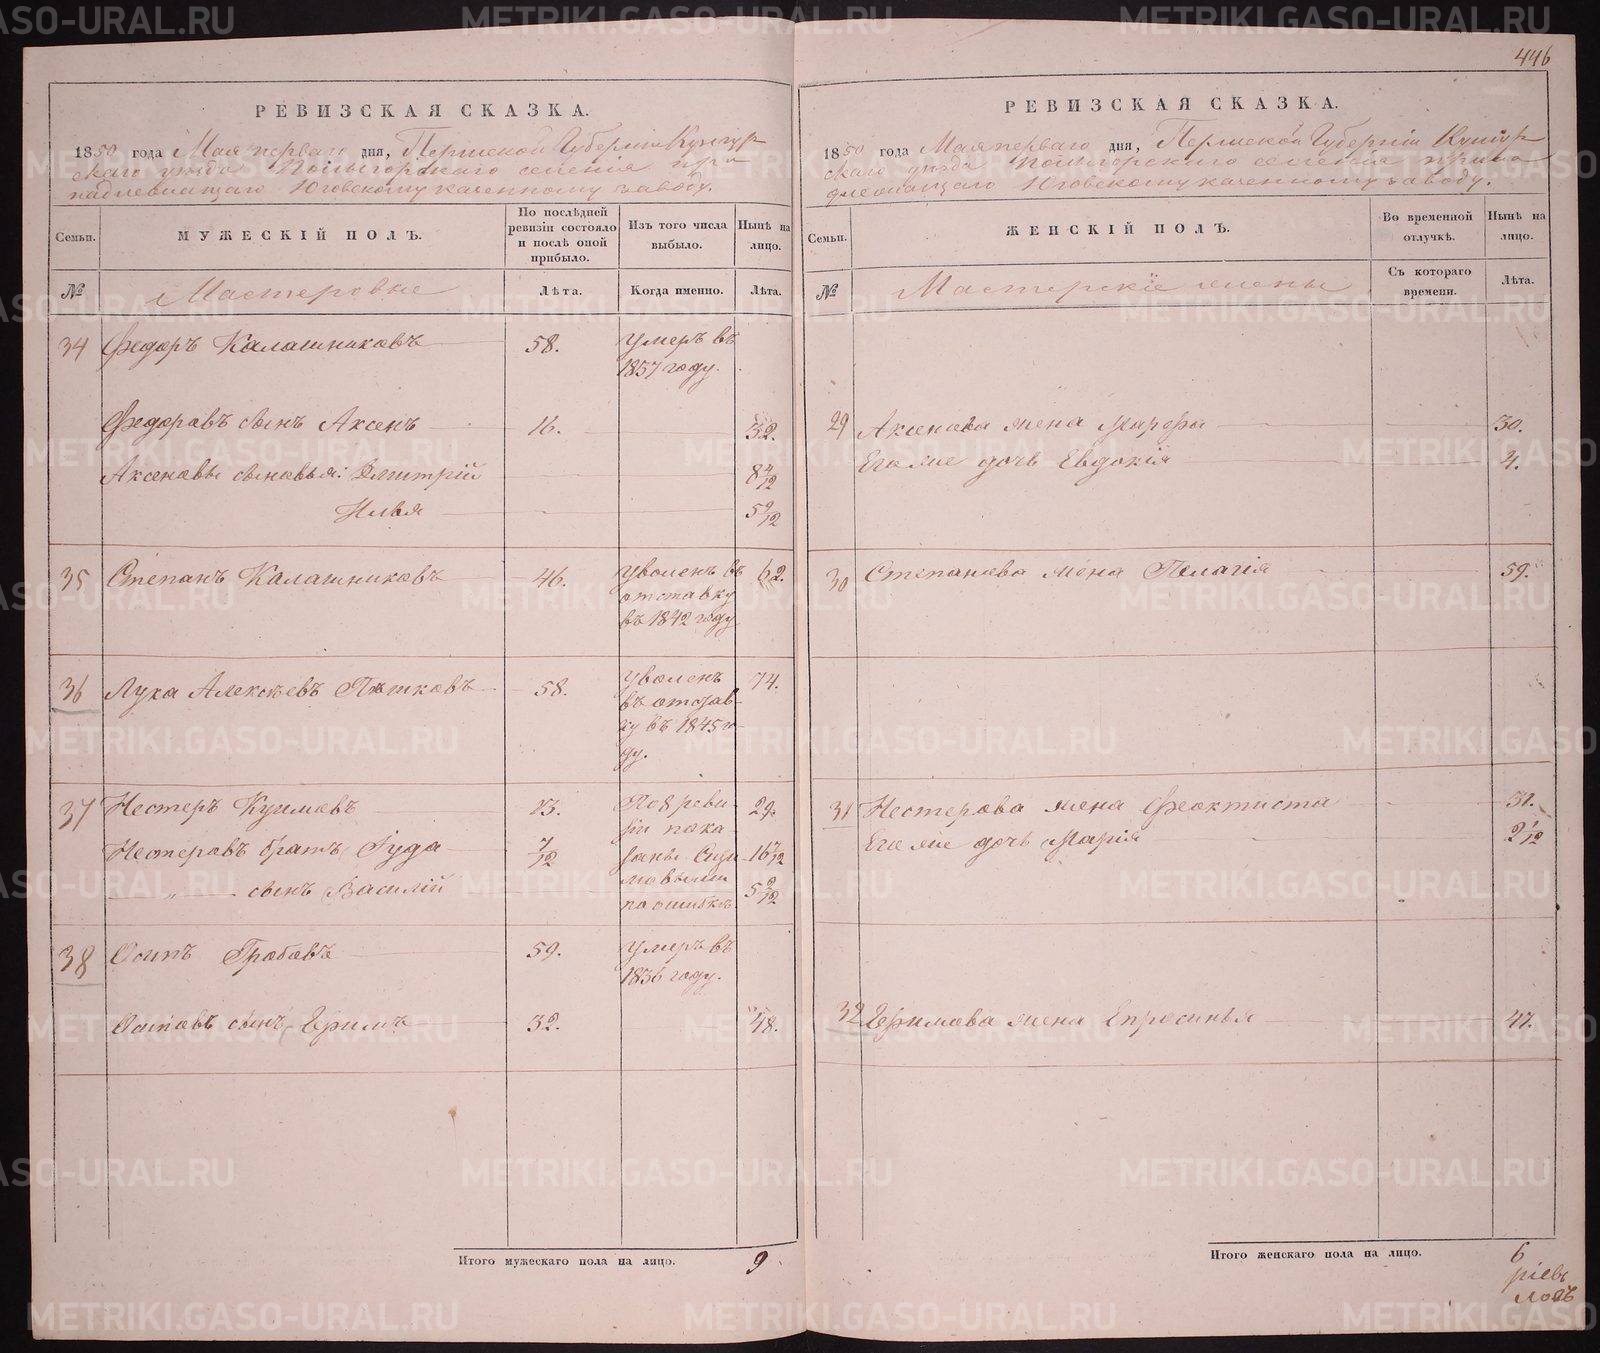 446
РЕВИЗСКАЯ СКАЗКА.
1850 года Мая перваго дня, Пермской Губерніи Кунгур
скаго уезда селенія при
надлежащаго Юговскому казенному заводу.
Семьи.
МУЖЕСКІЙ ПОЛЪ.
По послѣдней ревизіи состояло и послѣ оной прибыло.
Изъ того числа выбыло.
Нынѣ на лицо.
№
Мастеровые
Лѣта.
Когда именно.
Лѣта.
34 Федоръ Калашниковъ 58. умеръ въ
1837 году.
Федоровъ сынъ Аксенъ 16. 32.
Аксеновы сыновья: Дмитрій 8 4/12
Илья 5 9/12
35 Степанъ Калашниковъ 46. уволенъ въ 62.
отставку
въ 1842 году
36 Лука Алексѣевъ Пѣтковъ 58. уволенъ 74.
въ отстав-
ку въ 1845 го-
ду.
37 Нестеръ 13. По 8 реви- 29.
зіи пока-
Нестеровъ братъ Іуда 7/12 заны 16 7/12
„ сынъ Василій 5 9/12
по ошибкѣ.
38 Осипъ Грабовъ 59. умеръ въ
1836 году.
Осиповъ сынъ Ефимъ 32. 48.
Итого мужескаго пола на лицо. 9
РЕВИЗСКАЯ СКАЗКА.
1850 года Мая перваго дня, Пермской Губерніи Кунгур
скаго уезда селенія прина
длежащаго Юговскому казенному заводу.
Семьи.
ЖЕНСКІЙ ПОЛЪ.
Во временной отлучкѣ.
Нынѣ на лицо.
№
Мастерскіе жены
Съ котораго времени.
Лѣта.
29 Аксенова жена Марфа 30.
Его же дочь Евдокія 4.
30 Степанова жена Пелагія 59.
31 Нестерова жена Феоктиста 31.
Его же дочь Марія 2 1/12
32 Ефимова жена Епросинья 47.
Итого женскаго пола на лицо. 6
METRIKI.GASO-URAL.RU